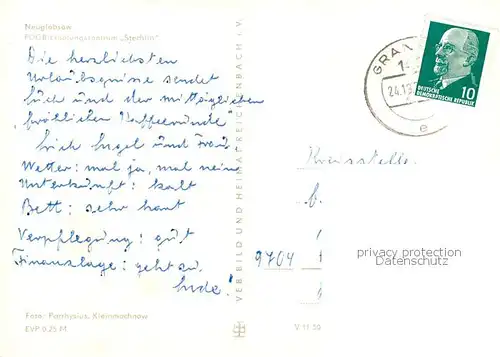 Neuglobsow
FDGB-Erholungszentrum „Stechlin"
Die herzlichsten
Urlaubsgrüsse sendet
Euch und der mittäglichen
"fröhlichen Kaffeerunde"
Erich Engel und Frau
Wetter: mal ja, mal nein
Unterkünft: kalt
Bett: sehr hart
Verpflegung: gut
Finanzlage: geht zu
Ende!
Foto: Parrhysius, Kleinmachnow
EVP 0,25 M
VEB BILD UND HEIMAT REICHENBACH i. V.
V 11 50
GRAN
14
24.1
e
10
DEUTSCHE
DEMOKRATISCHE REPUBLIK
Kreisstelle
b.
9704
privacy protection
Datenschutz